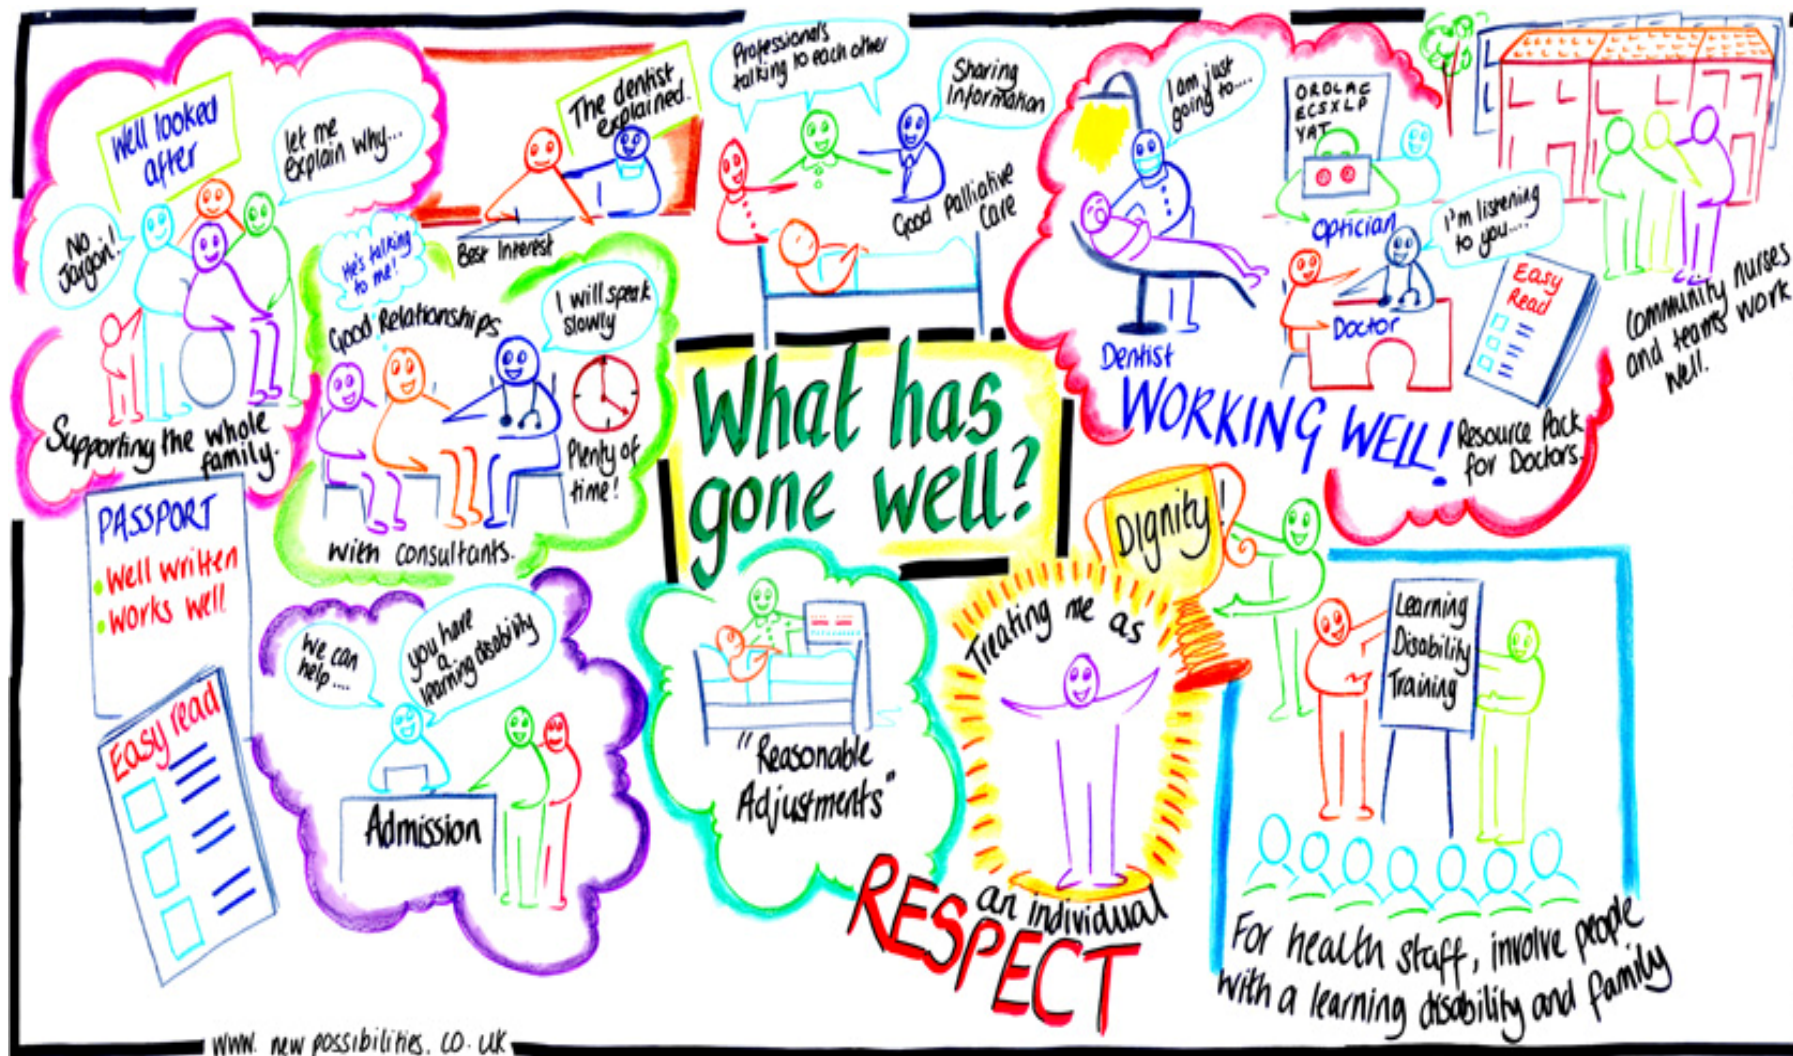 Well looked
after
let me
explain why...
No
Jargon!
Supporting the whole
family.
The dentist
explained.
Best Interest
He's talking
to me!
Good Relationships
I will speak
slowly
Plenty of
time!
with consultants.
Professionals
talking to each other
Sharing
Information
Good Palliative
Care
I am just
going to.....
Dentist
OROLAC
ECSXLP
YAT
Optician
I'm listening
to you....
Doctor
Easy
Read
WORKING WELL!
Resource Pack
for Doctors.
Community nurses
and teams work
well.
What has
gone well?
PASSPORT
• Well written
• Works well
Easy read
We can
help....
you have
a
learning disability
Admission
"Reasonable
Adjustments"
Dignity!
Treating me as
an individual
RESPECT
Learning
Disability
Training
For health staff, involve people
with a learning disability and family
www.newpossibilities.co.uk